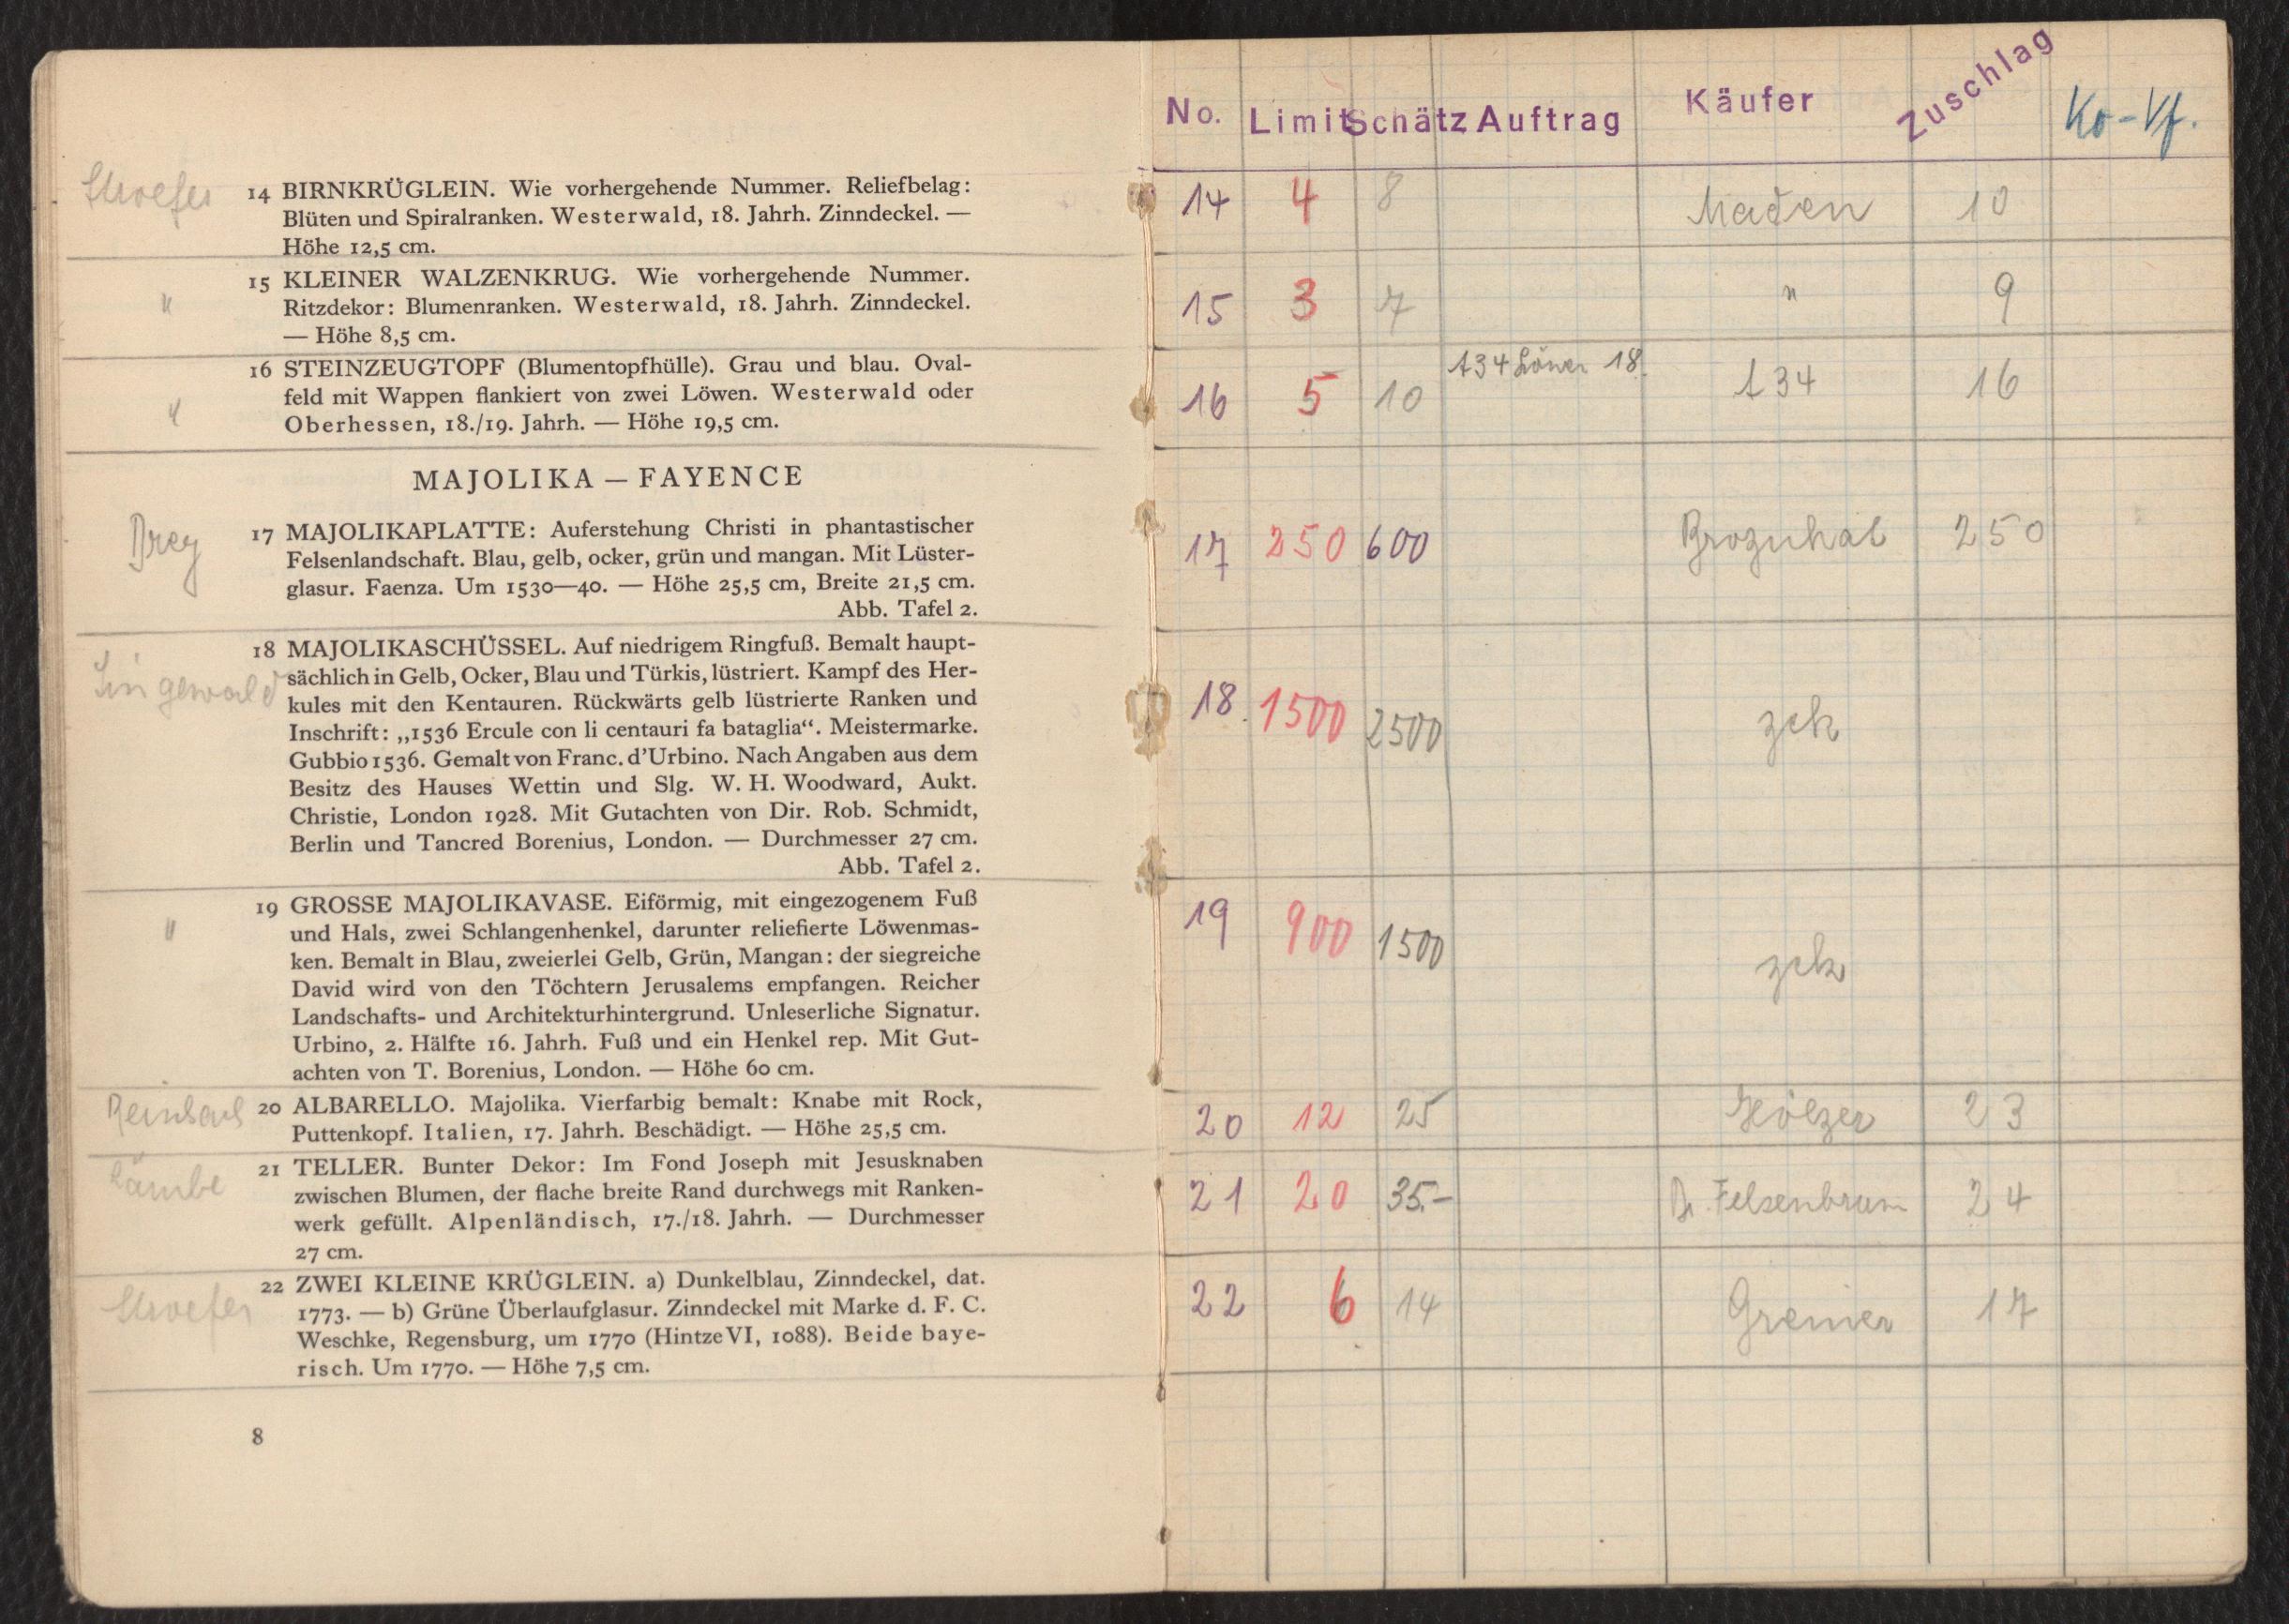 Stroefer 14 BIRNKRÜGLEIN. Wie vorhergehende Nummer. Reliefbelag:
Blüten und Spiralranken. Westerwald, 18. Jahrh. Zinndeckel. —
Höhe 12,5 cm.
" 15 KLEINER WALZENKRUG. Wie vorhergehende Nummer.
Ritzdekor: Blumenranken. Westerwald, 18. Jahrh. Zinndeckel.
— Höhe 8,5 cm.
16 STEINZEUGTOPF (Blumentopfhülle). Grau und blau. Oval-
" feld mit Wappen flankiert von zwei Löwen. Westerwald oder
Oberhessen, 18./19. Jahrh. — Höhe 19,5 cm.
MAJOLIKA — FAYENCE
Drey 17 MAJOLIKAPLATTE: Auferstehung Christi in phantastischer
Felsenlandschaft. Blau, gelb, ocker, grün und mangan. Mit Lüster-
glasur. Faenza. Um 1530—40. — Höhe 25,5 cm, Breite 21,5 cm.
Abb. Tafel 2.
18 MAJOLIKASCHÜSSEL. Auf niedrigem Ringfuß. Bemalt haupt-
sächlich in Gelb, Ocker, Blau und Türkis, lüstriert. Kampf des Her-
kules mit den Kentauren. Rückwärts gelb lüstrierte Ranken und
Inschrift: „1536 Ercule con li centauri fa bataglia“. Meistermarke.
Gubbio 1536. Gemalt von Franc. d'Urbino. Nach Angaben aus dem
Besitz des Hauses Wettin und Slg. W. H. Woodward, Aukt.
Christie, London 1928. Mit Gutachten von Dir. Rob. Schmidt,
Berlin und Tancred Borenius, London. — Durchmesser 27 cm.
Abb. Tafel 2.
19 GROSSE MAJOLIKAVASE. Eiförmig, mit eingezogenem Fuß
" und Hals, zwei Schlangenhenkel, darunter reliefierte Löwenmas-
ken. Bemalt in Blau, zweierlei Gelb, Grün, Mangan: der siegreiche
David wird von den Töchtern Jerusalems empfangen. Reicher
Landschafts- und Architekturhintergrund. Unleserliche Signatur.
Urbino, 2. Hälfte 16. Jahrh. Fuß und ein Henkel rep. Mit Gut-
achten von T. Borenius, London. — Höhe 60 cm.
20 ALBARELLO. Majolika. Vierfarbig bemalt: Knabe mit Rock,
Puttenkopf. Italien, 17. Jahrh. Beschädigt. — Höhe 25,5 cm.
21 TELLER. Bunter Dekor: Im Fond Joseph mit Jesusknaben
zwischen Blumen, der flache breite Rand durchwegs mit Ranken-
werk gefüllt. Alpenländisch, 17./18. Jahrh. — Durchmesser
27 cm.
22 ZWEI KLEINE KRÜGLEIN. a) Dunkelblau, Zinndeckel, dat.
Stroefer 1773. — b) Grüne Überlaufglasur. Zinndeckel mit Marke d. F. C.
Weschke, Regensburg, um 1770 (Hintze VI, 1088). Beide baye-
risch. Um 1770. — Höhe 7,5 cm.
8
No. Limit Schätz Auftrag Käufer Zuschlag Ko-Vf.
14 4 8 Maden 10
15 3 7 " 9
16 5 10 134 18. 134 16
17 250 600 250
18. 1500 2500 zck
19 900 1500 zck
20 12 25 Hölzer 23
21 20 35.- Dr. Felsenbrunn 24
22 6 14 Greiner 17